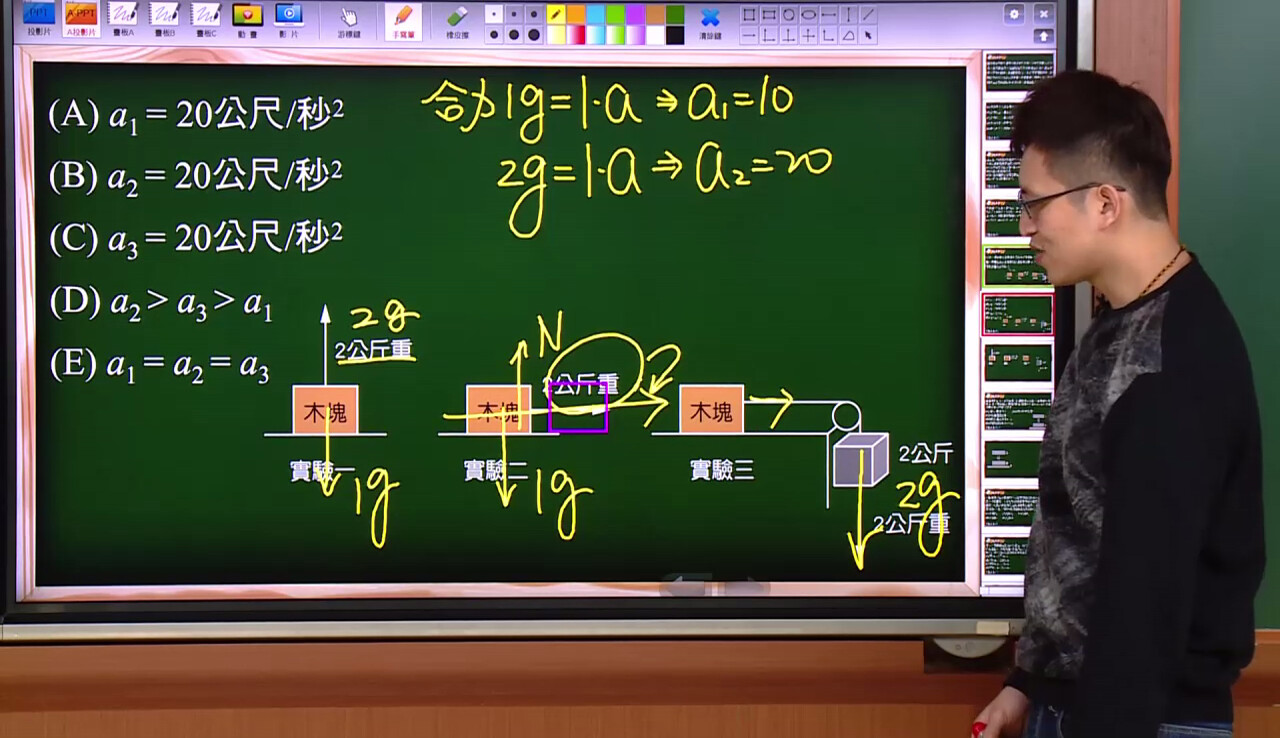 PPT A-PPT
投影片 A投影片 畫板A 畫板B 畫板C 動畫 影片 游標鍵 手寫筆 橡皮擦 清除鍵
(A) a₁ = 20公尺/秒²
(B) a₂ = 20公尺/秒²
(C) a₃ = 20公尺/秒²
(D) a₂ > a₃ > a₁
(E) a₁ = a₂ = a₃
合力 1g=1·a ⇒ a₁=10
2g=1·a ⇒ a₂=20
2g
2公斤重
木塊
實驗一
1g
N
2公斤重
2
木塊
實驗二
1g
木塊
實驗三
2公斤
2g
2公斤重